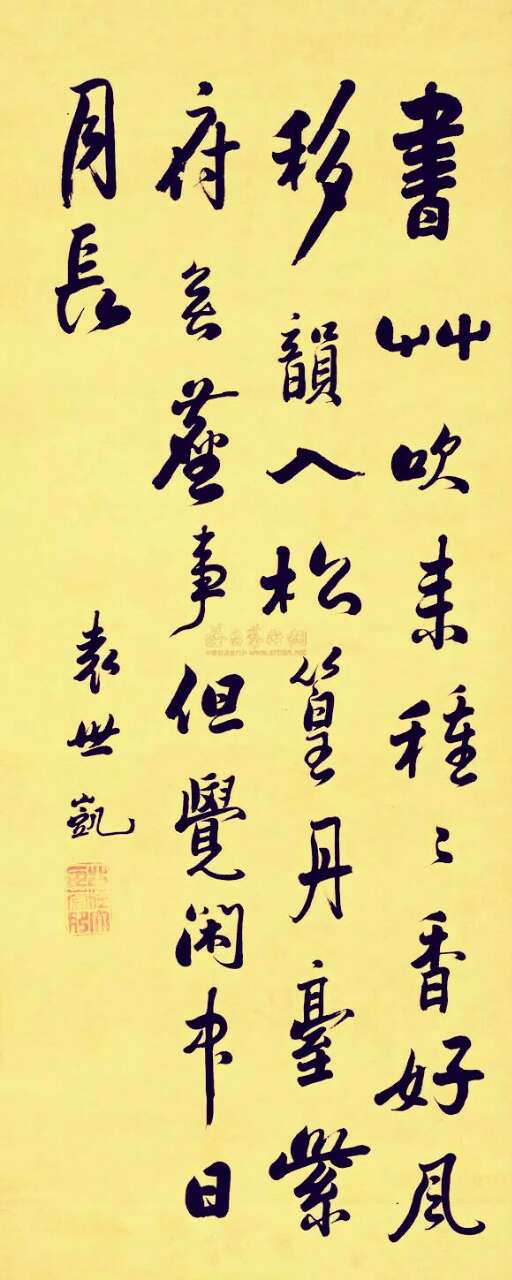 書艸吹来種〻香好風
移韻入松篁丹臺紫
府無塵事但覺閑中日
月長
袁世凱